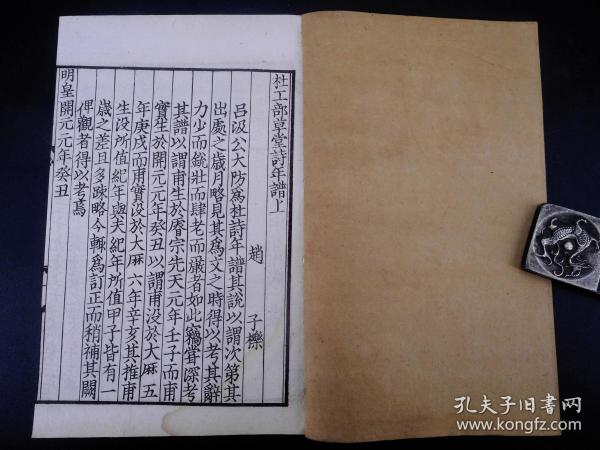 杜工部草堂詩年譜上
趙 子櫟
呂汲公大防爲杜詩年譜其說以謂次第其
出處之歲月略見其爲文之時得以考其辭
力少而銳壯而肆老而嚴者如此竊嘗深考
其譜以謂甫生於睿宗先天元年壬子而甫
實生於開元元年癸丑以謂甫没於大厤五
年庚戌而甫實没於大厤六年辛亥其推甫
生没所值紀年與夫紀年所值甲子皆有一
歲之差且多疎略今輒爲訂正而稍補其闕
俾觀者得以考焉
明皇開元元年癸丑
孔夫子旧书网
www.kongfz.com